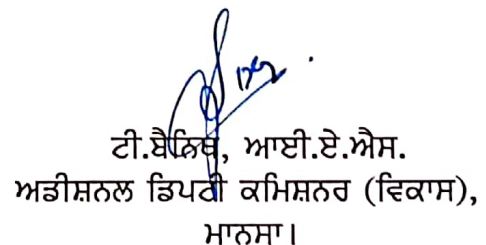 ਟੀ.ਬੈਨਿਥ, ਆਈ.ਏ.ਐਸ.
ਅਡੀਸ਼ਨਲ ਡਿਪਟੀ ਕਮਿਸ਼ਨਰ (ਵਿਕਾਸ),
ਮਾਨਸਾ।